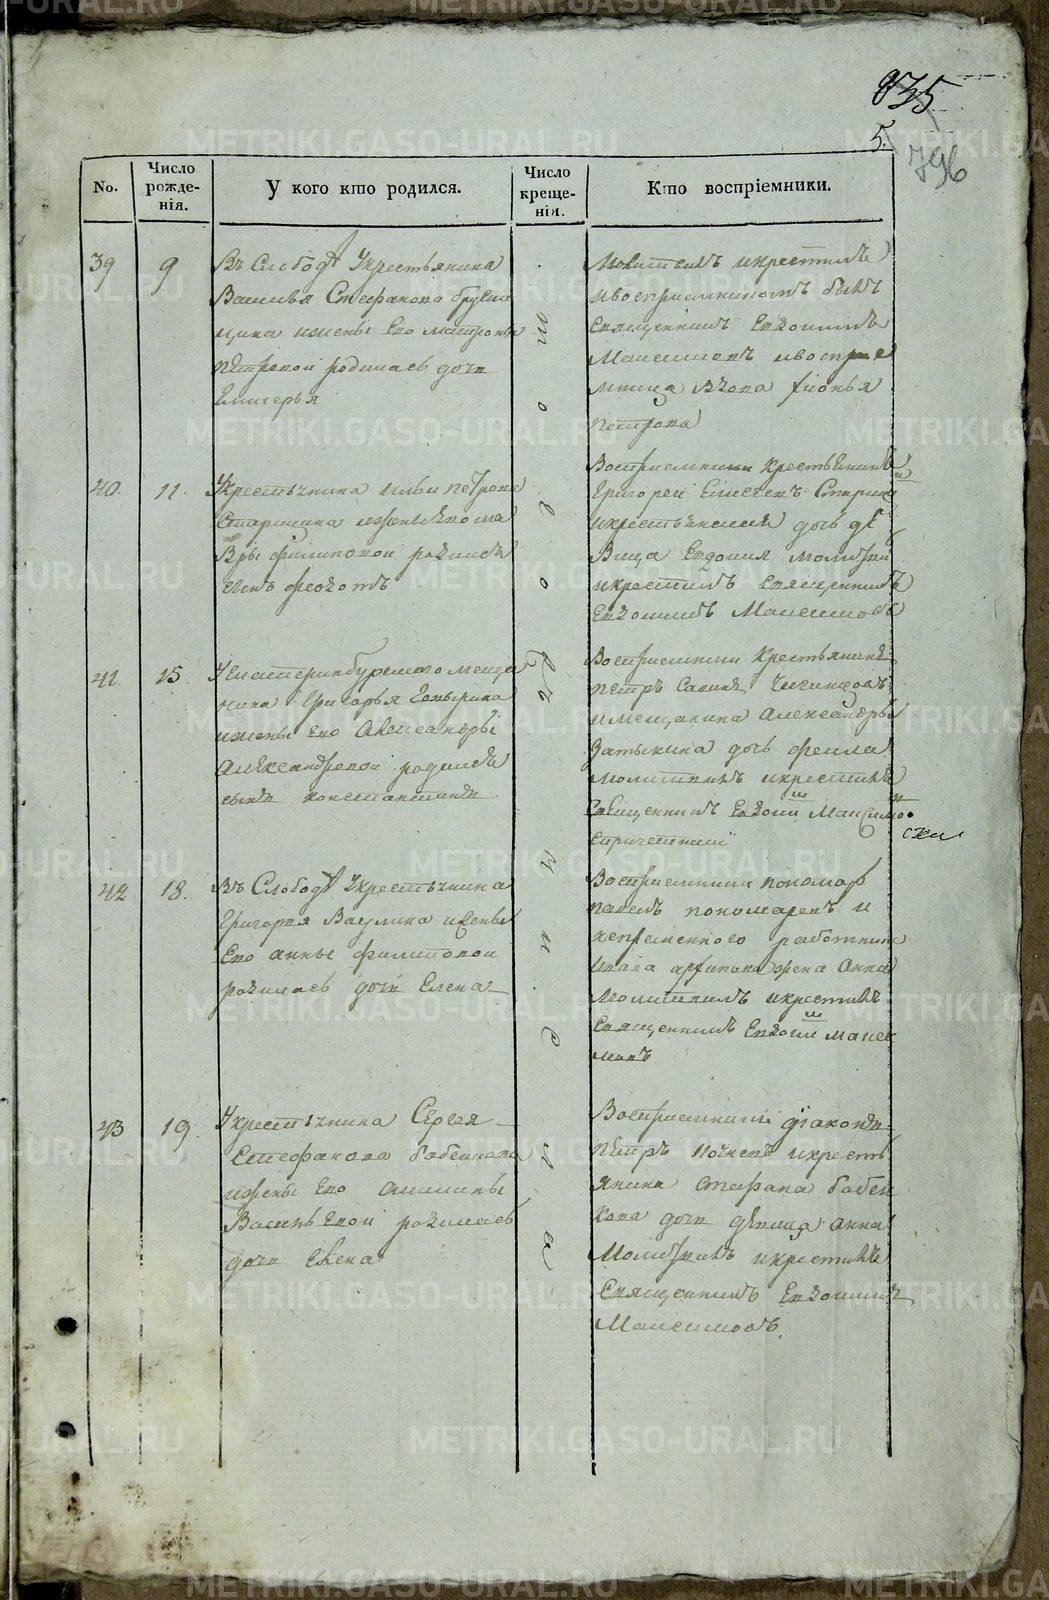 835
5.
796
No.
Число рожденія.
У кого кто родился.
Число крещенія.
Кто воспріемники.
39
9
Въ Слободѣ Укрестьянина
Василья Стефанова
ижены Его
Петровой родилась дочь
того въ числа
Молитвилъ икрестилъ
ивосприемникомъ былъ
Священникъ Евдокимъ
Максимовъ ивоспрїе
мница вдова
Петрова
40.
11.
Укрестьянина Ильи Петрова
Старицина ижены Его Ма
вры Филиповой родился
сынъ Феодотъ
Восприемники крестьянинъ
Григорей Елисеевъ
икрестьянская дочь дѣ
вица Евдокия молитвилъ
икрестилъ Священникъ
Евдокимъ Максимовъ
41.
15.
Уекатеринбурского меща
нина Григорья
ижены Его Александры
Александровой родился
сынъ константинъ
Восприемники Крестьянинъ
Петръ Савинъ
имещанина Александры
Затыкина дочь Фекла
молитвилъ икрестилъ
Священникъ Евдоким Максимовъ
спричетники
42
18.
Въ Слободѣ Укрестьянина
Григорья Ваулина ижены
Его анны Филиповой
родилась дочь Елена
Восприемники пономарь
павелъ пономаревъ и
непременного работника
Ивана архипова жена Анна
Молитвилъ икрестилъ
Священникъ Евдоким макси
мовъ
43
19.
Укрестьянина Сергея
Стефанова бабенкова
ижены Его
Васильевой родилась
дочь Елена
Восприемники диаконъ
Петръ икресть
янина Стефана бабен
кова дочь дѣвица анна
Молитвилъ икрестилъ
Священникъ Евдокимъ
Максимовъ.
METRIKI.GASO-URAL.RU